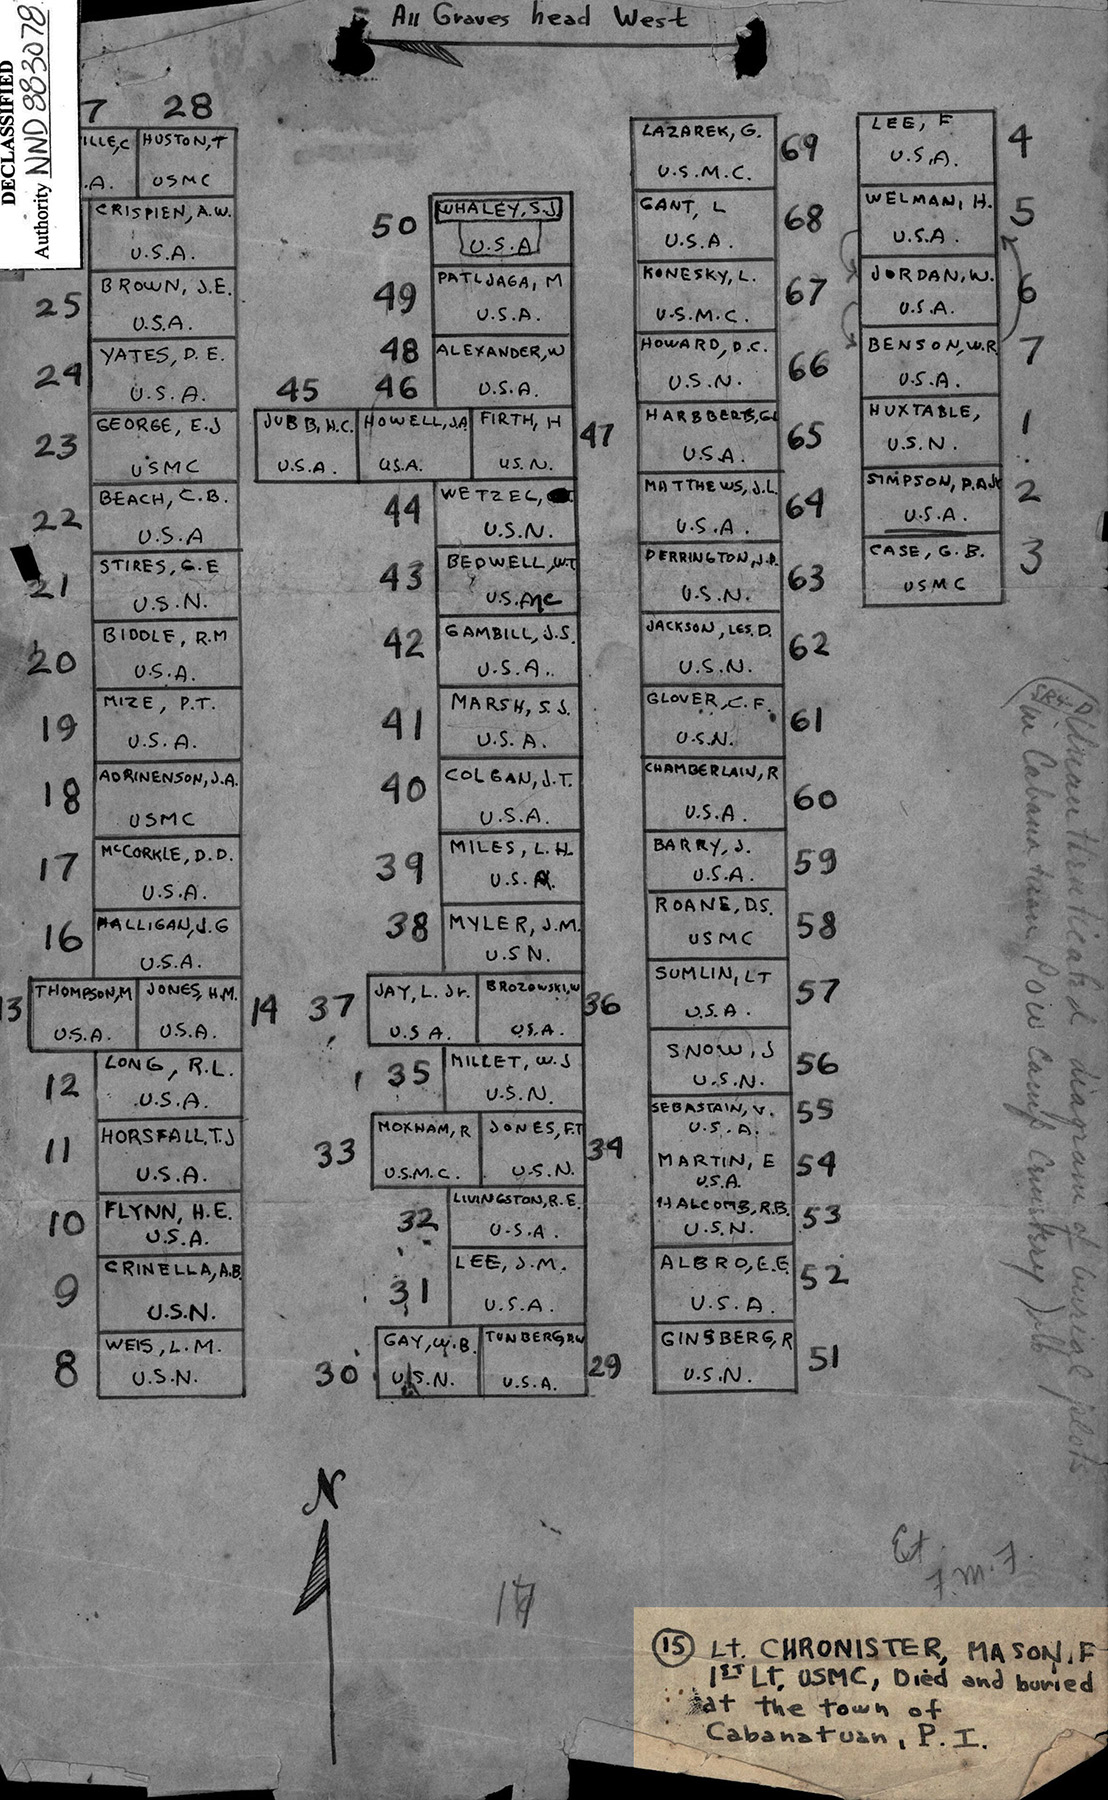 All Graves head West
DECLASSIFIED
Authority NND 883078
7 28
ILLE,C HUSTON,T
.A. USMC
CRISPIEN, A.W.
U.S.A.
25 BROWN, J.E.
U.S.A.
24 YATES, D.E.
U.S.A.
23 GEORGE, E.J
USMC
22 BEACH, C.B.
U.S.A
21 STIRES, G.E
U.S.N.
20 BIDDLE, R.M
U.S.A.
19 MIZE, P.T.
U.S.A.
18 ADRINENSON, J.A.
USMC
17 McCORKLE, D.D.
U.S.A.
16 HALLIGAN, J.G
U.S.A.
13 THOMPSON, M JONES, H.M. 14
U.S.A. U.S.A.
12 LONG, R.L.
U.S.A.
11 HORSFALL, T.J
U.S.A.
10 FLYNN, H.E.
U.S.A.
9 CRINELLA, A.B.
U.S.N.
8 WEIS, L.M.
U.S.N.
50 WHALEY, S.J.
U.S.A
49 PATLJAGA, M
U.S.A.
48 ALEXANDER, W
U.S.A.
45 46
JUBB, H.C. HOWELL, J.A FIRTH, H 47
U.S.A. U.S.A. U.S.N.
44 WETZEL,
U.S.N.
43 BEDWELL, W.T
U.S.MC
42 GAMBILL, J.S.
U.S.A..
41 MARSH, S.J.
U.S.A.
40 COLGAN, J.T.
U.S.A.
39 MILES, L.H.
U.S.A.
38 MYLER, J.M.
U.S N.
37 JAY, L. Jr. BROZOWSKI, W 36
U.S A. U.S.A.
35 MILLET, W.J
U.S.N.
33 MOXHAM, R JONES, F.T 34
U.S.M.C. U.S.N.
32 LIVINGSTON, R.E.
U.S.A
31 LEE, J.M.
U.S.A.
30 GAY, W.B. TUNBERG, 29
U.S.N. U.S.A.
LAZAREK, G. 69
U.S.M.C.
GANT, L 68
U.S.A.
KONESKY, L. 67
U.S.M.C.
HOWARD, D.C. 66
U.S.N.
HARBBERTS, G 65
U.S.A.
MATTHEWS, J.L. 64
U.S.A.
DERRINGTON, J.D. 63
U.S.N.
JACKSON, LES. D. 62
U.S.N.
GLOVER, C.F. 61
U.S.N.
CHAMBERLAIN, R 60
U.S.A.
BARRY, J. 59
U.S.A.
ROANE, D.S. 58
USMC
SUMLIN, LT 57
U.S.A.
SNOW, J 56
U.S.N.
SEBASTAIN, V. 55
U.S.A.
MARTIN, E 54
U.S.A.
HALCOMB, R.B. 53
U.S.N.
ALBRO, E.E. 52
U.S.A.
GINSBERG, R 51
U.S.N.
LEE, F 4
U.S.A.
WELMAN, H. 5
U.S.A.
JORDAN, W. 6
U.S.A.
BENSON, W.R 7
U.S.A.
HUXTABLE, 1
U.S.N.
SIMPSON, P.A.Jr 2
U.S.A.
CASE, G.B. 3
USMC
(Unauthenticated diagram of burial plots
in Cabanatuan POW Camp Cemetery)
N
17
F.M.F.
15 Lt. CHRONISTER, MASON. F
1ST Lt, USMC, Died and buried
at the town of
Cabanatuan, P.I.